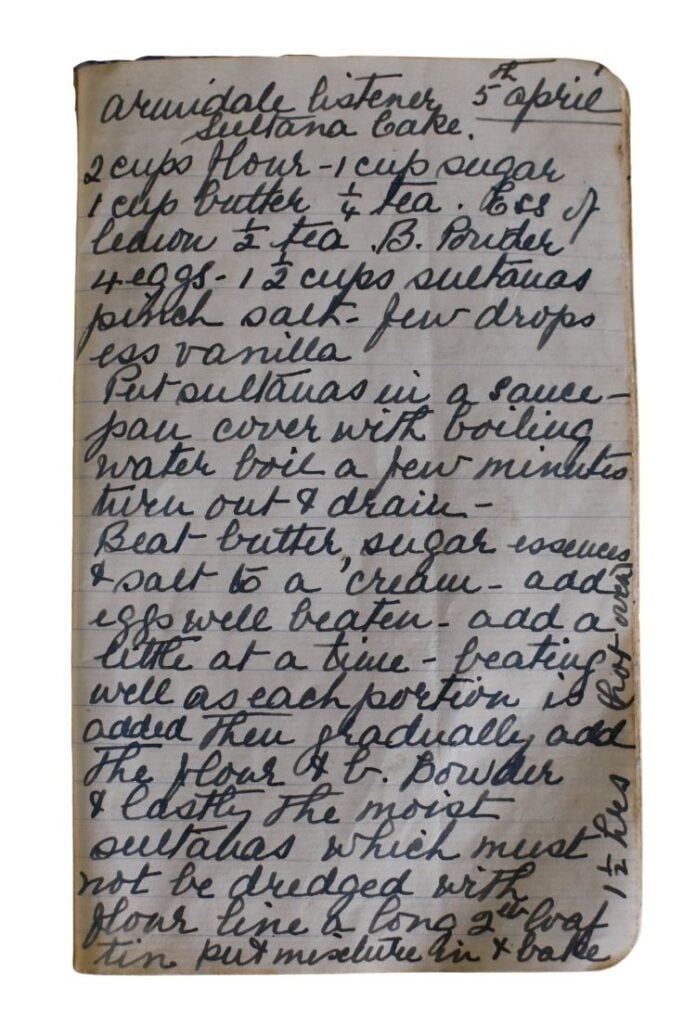 armidale listener 5th april
Sultana Cake.
2 cups flour - 1 cup sugar
1 cup butter ¼ tea. Ess of
lemon ½ tea. B. Powder
4 eggs - 1 ½ cups sultanas
pinch salt - few drops
ess vanilla
Put sultanas in a sauce-
pan cover with boiling
water boil a few minutes
turn out & drain -
Beat butter, sugar essences
& salt to a cream - add
eggs well beaten - add a
little at a time - beating
well as each portion is
added then gradually add
the flour & b. Powder
& lastly the moist
sultanas which must
not be dredged with
flour line a long 2lb loaf
tin put mixture in & bake
1 ½ hrs (hot oven)